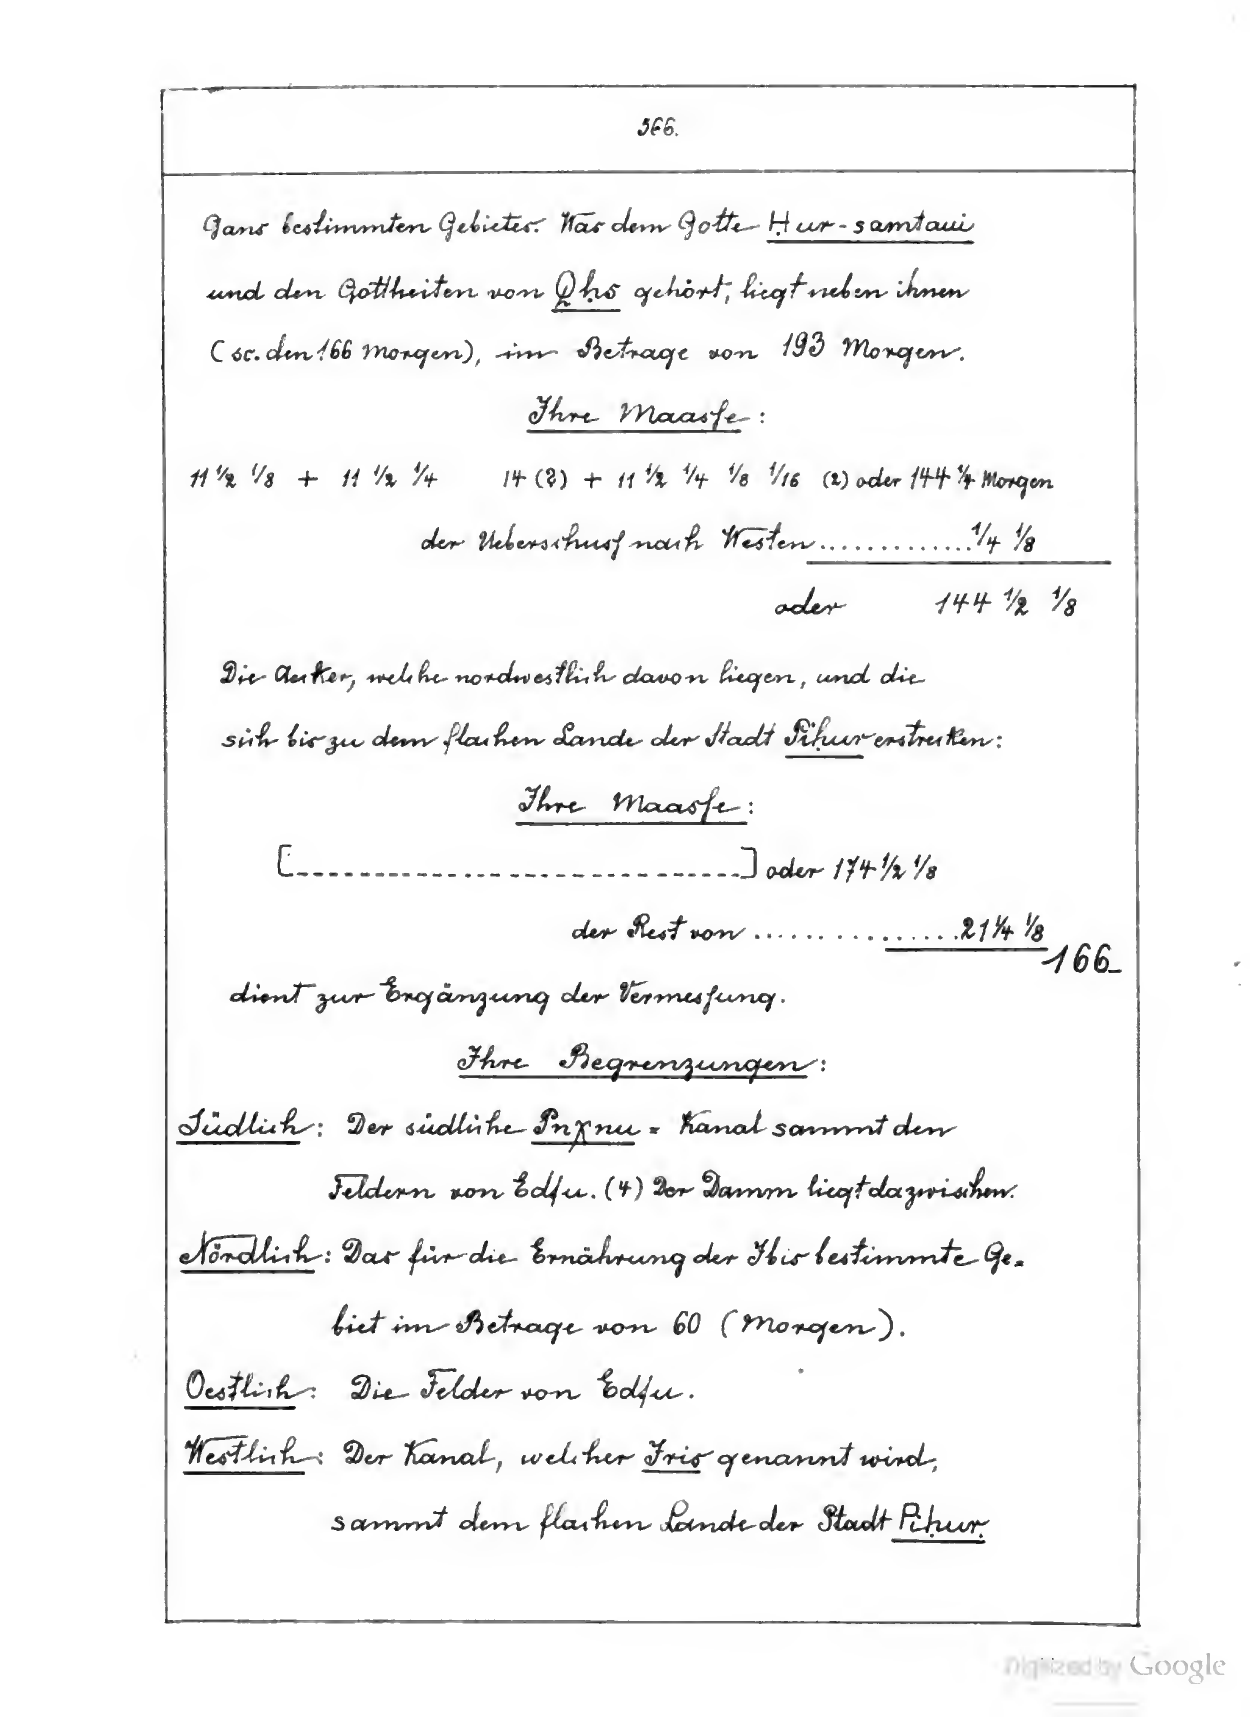 566.
Gans bestimmten Gebietes. Was dem Gotte Ḥur-samtaui
und den Gottheiten von Qḥs gehört, liegt neben ihnen
(sc. den 166 Morgen), im Betrage von 193 Morgen.
Ihre Maasse:
11 1/2 1/8 + 11 1/2 1/4 14 (?) + 11 1/2 1/4 1/8 1/16 (?) oder 144 1/4 Morgen
der Ueberschuss nach Westen..............1/4 1/8
oder 144 1/2 1/8
Die Aecker, welche nordwestlich davon liegen, und die
sich bis zu dem flachen Lande der Stadt Piḥur erstrecken:
Ihre Maasse:
[-----------------------------] oder 174 1/2 1/8
der Rest von ................21 1/4 1/8
166
dient zur Ergänzung der Vermessung.
Ihre Begrenzungen:
Südlich: Der südliche Pnχnu = Kanal sammt den
Feldern von Edfu. (4) Der Damm liegt dazwischen.
Nördlich: Das für die Ernährung der Ibis bestimmte Ge=
biet im Betrage von 60 (Morgen).
Oestlich: Die Felder von Edfu.
Westlich: Der Kanal, welcher Iris genannt wird,
sammt dem flachen Lande der Stadt Piḥur.
Digitized by Google